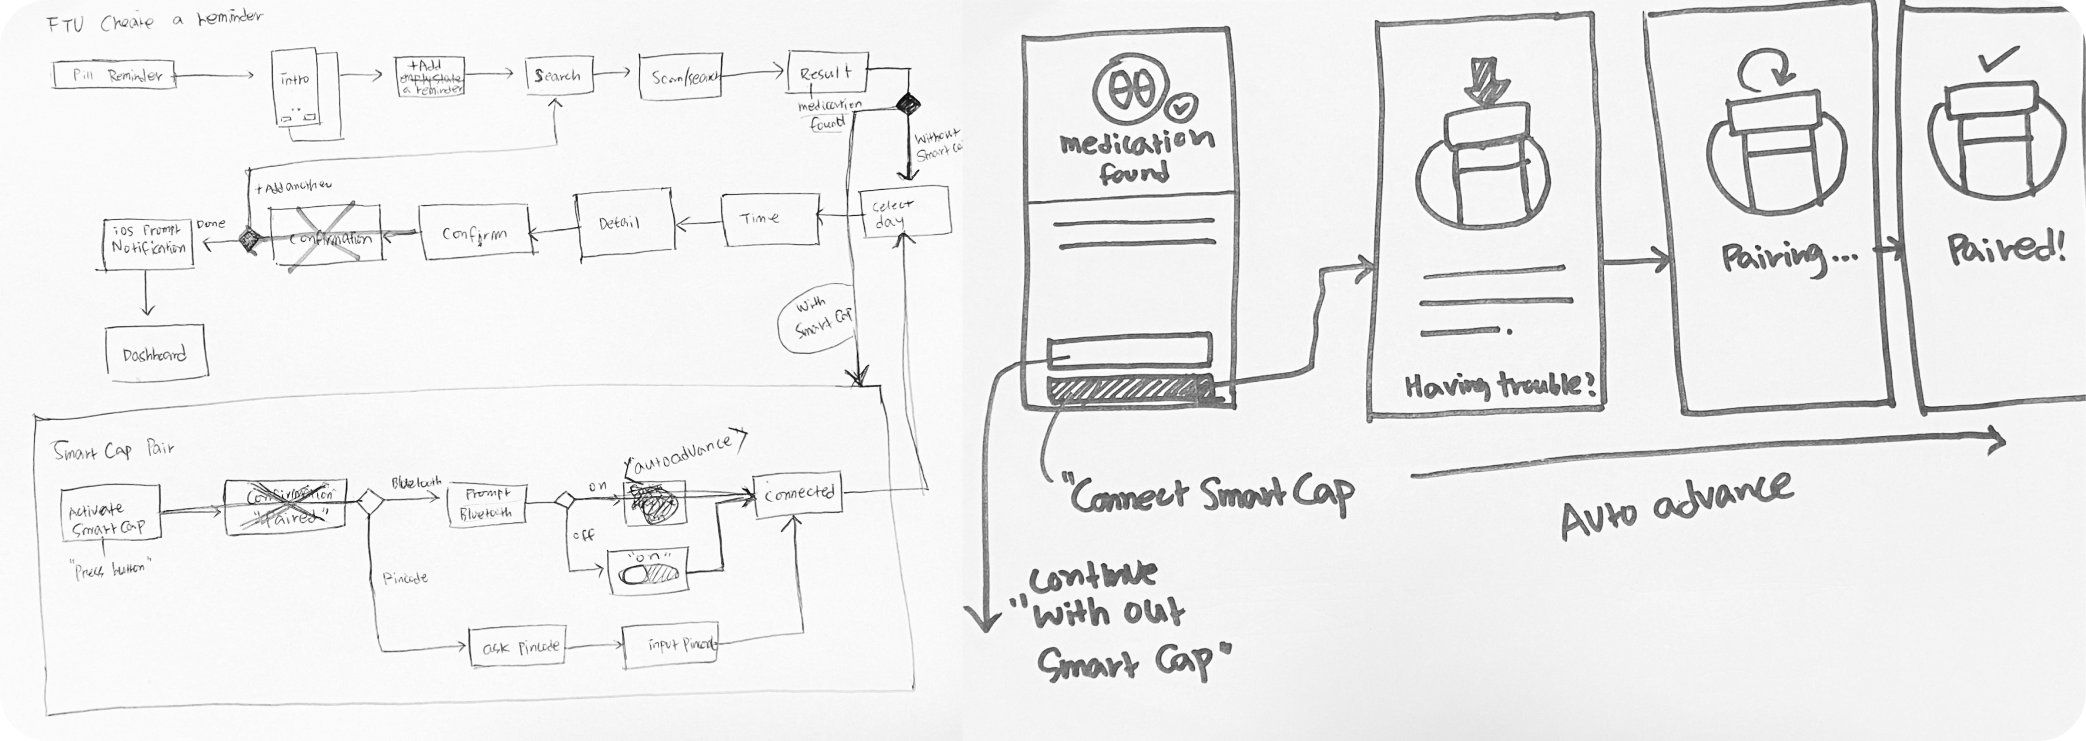 FTU Create a reminder
Pill Reminder
intro
+Add
empty state
a reminder
Search
Scan/search
Result
medication
found
Without
Smart Ca
+Add another
Done
iOS Prompt
Notification
Confirmation
Confirm
Detail
Time
Select
day
With
Smart Cap
Dashboard
Smart Cap Pair
Activate
Smart Cap
"Press button"
Confirmation
"Paired"
Bluetooth
Prompt
Bluetooth
on
<autoadvance>
Connected
off
"on"
Pincode
ask Pincode
input Pincode
medication
found
Having trouble?
Pairing...
Paired!
"Connect Smart Cap
Auto advance
Continue
"With out
Smart Cap"